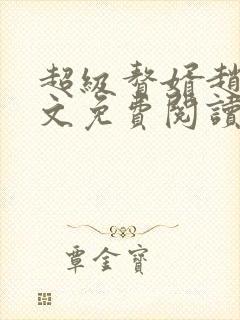 超級贅婿趙
文免費閱讀
覃金寶